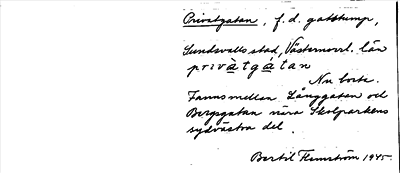 Privatgatan, f.d. gatstump,
Sundsvalls stad, Västernorrl. län
privàtgátan
Nu borta.
Fanns mellan Långgatan och
Bergsgatan nära Skolparkens
sydvästra del.
Bertil Flemström 1945.